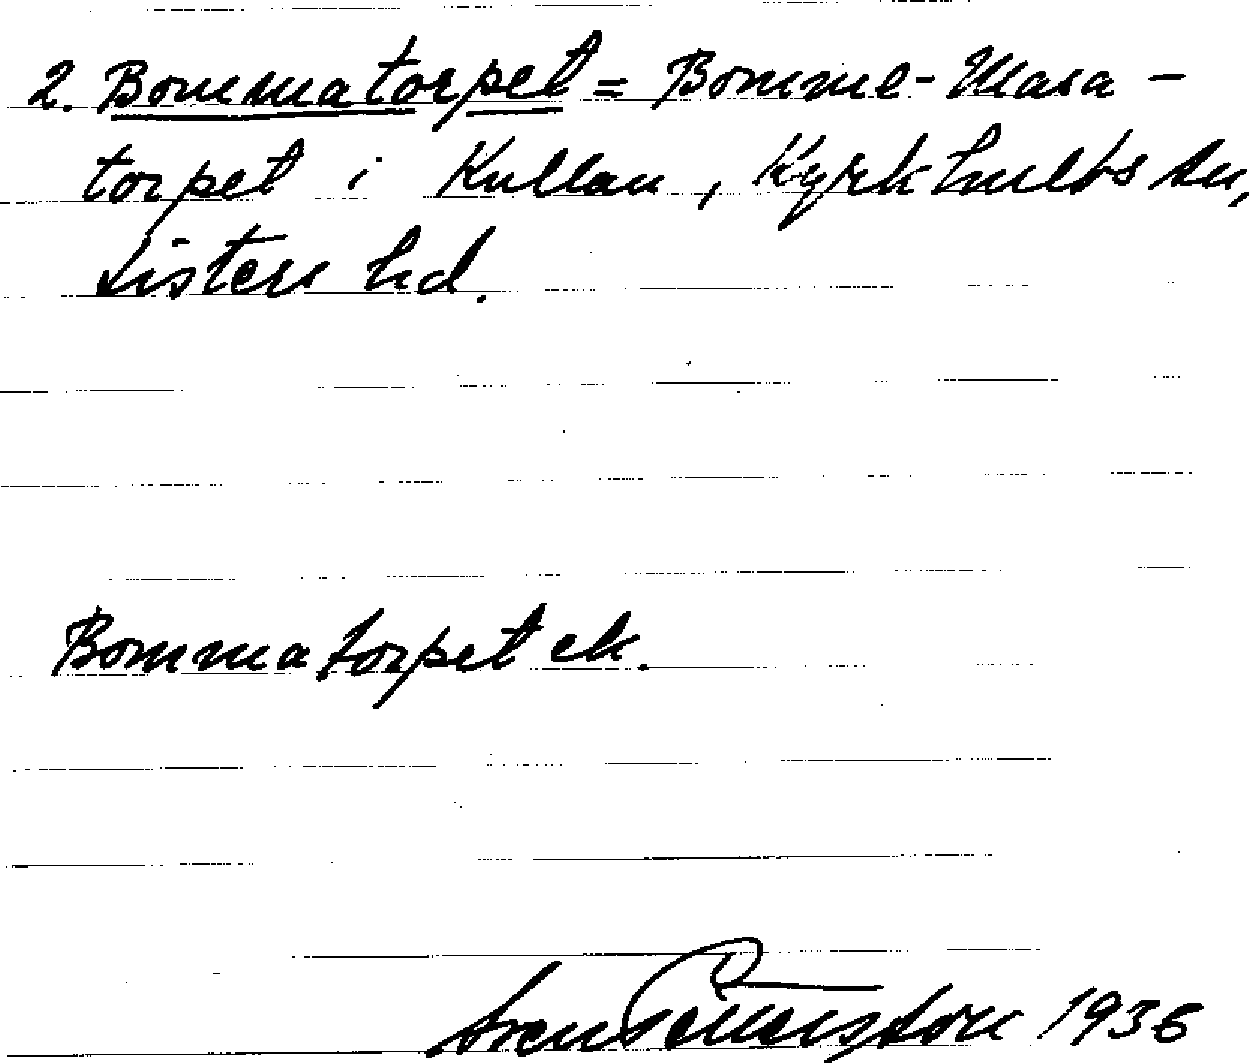 2. Bommatorpet = Bomme-Masa-
torpet i Kullan, Kyrkhults sn,
Listers hd.
Bommatorpet ek.
Sven Petersson 1936